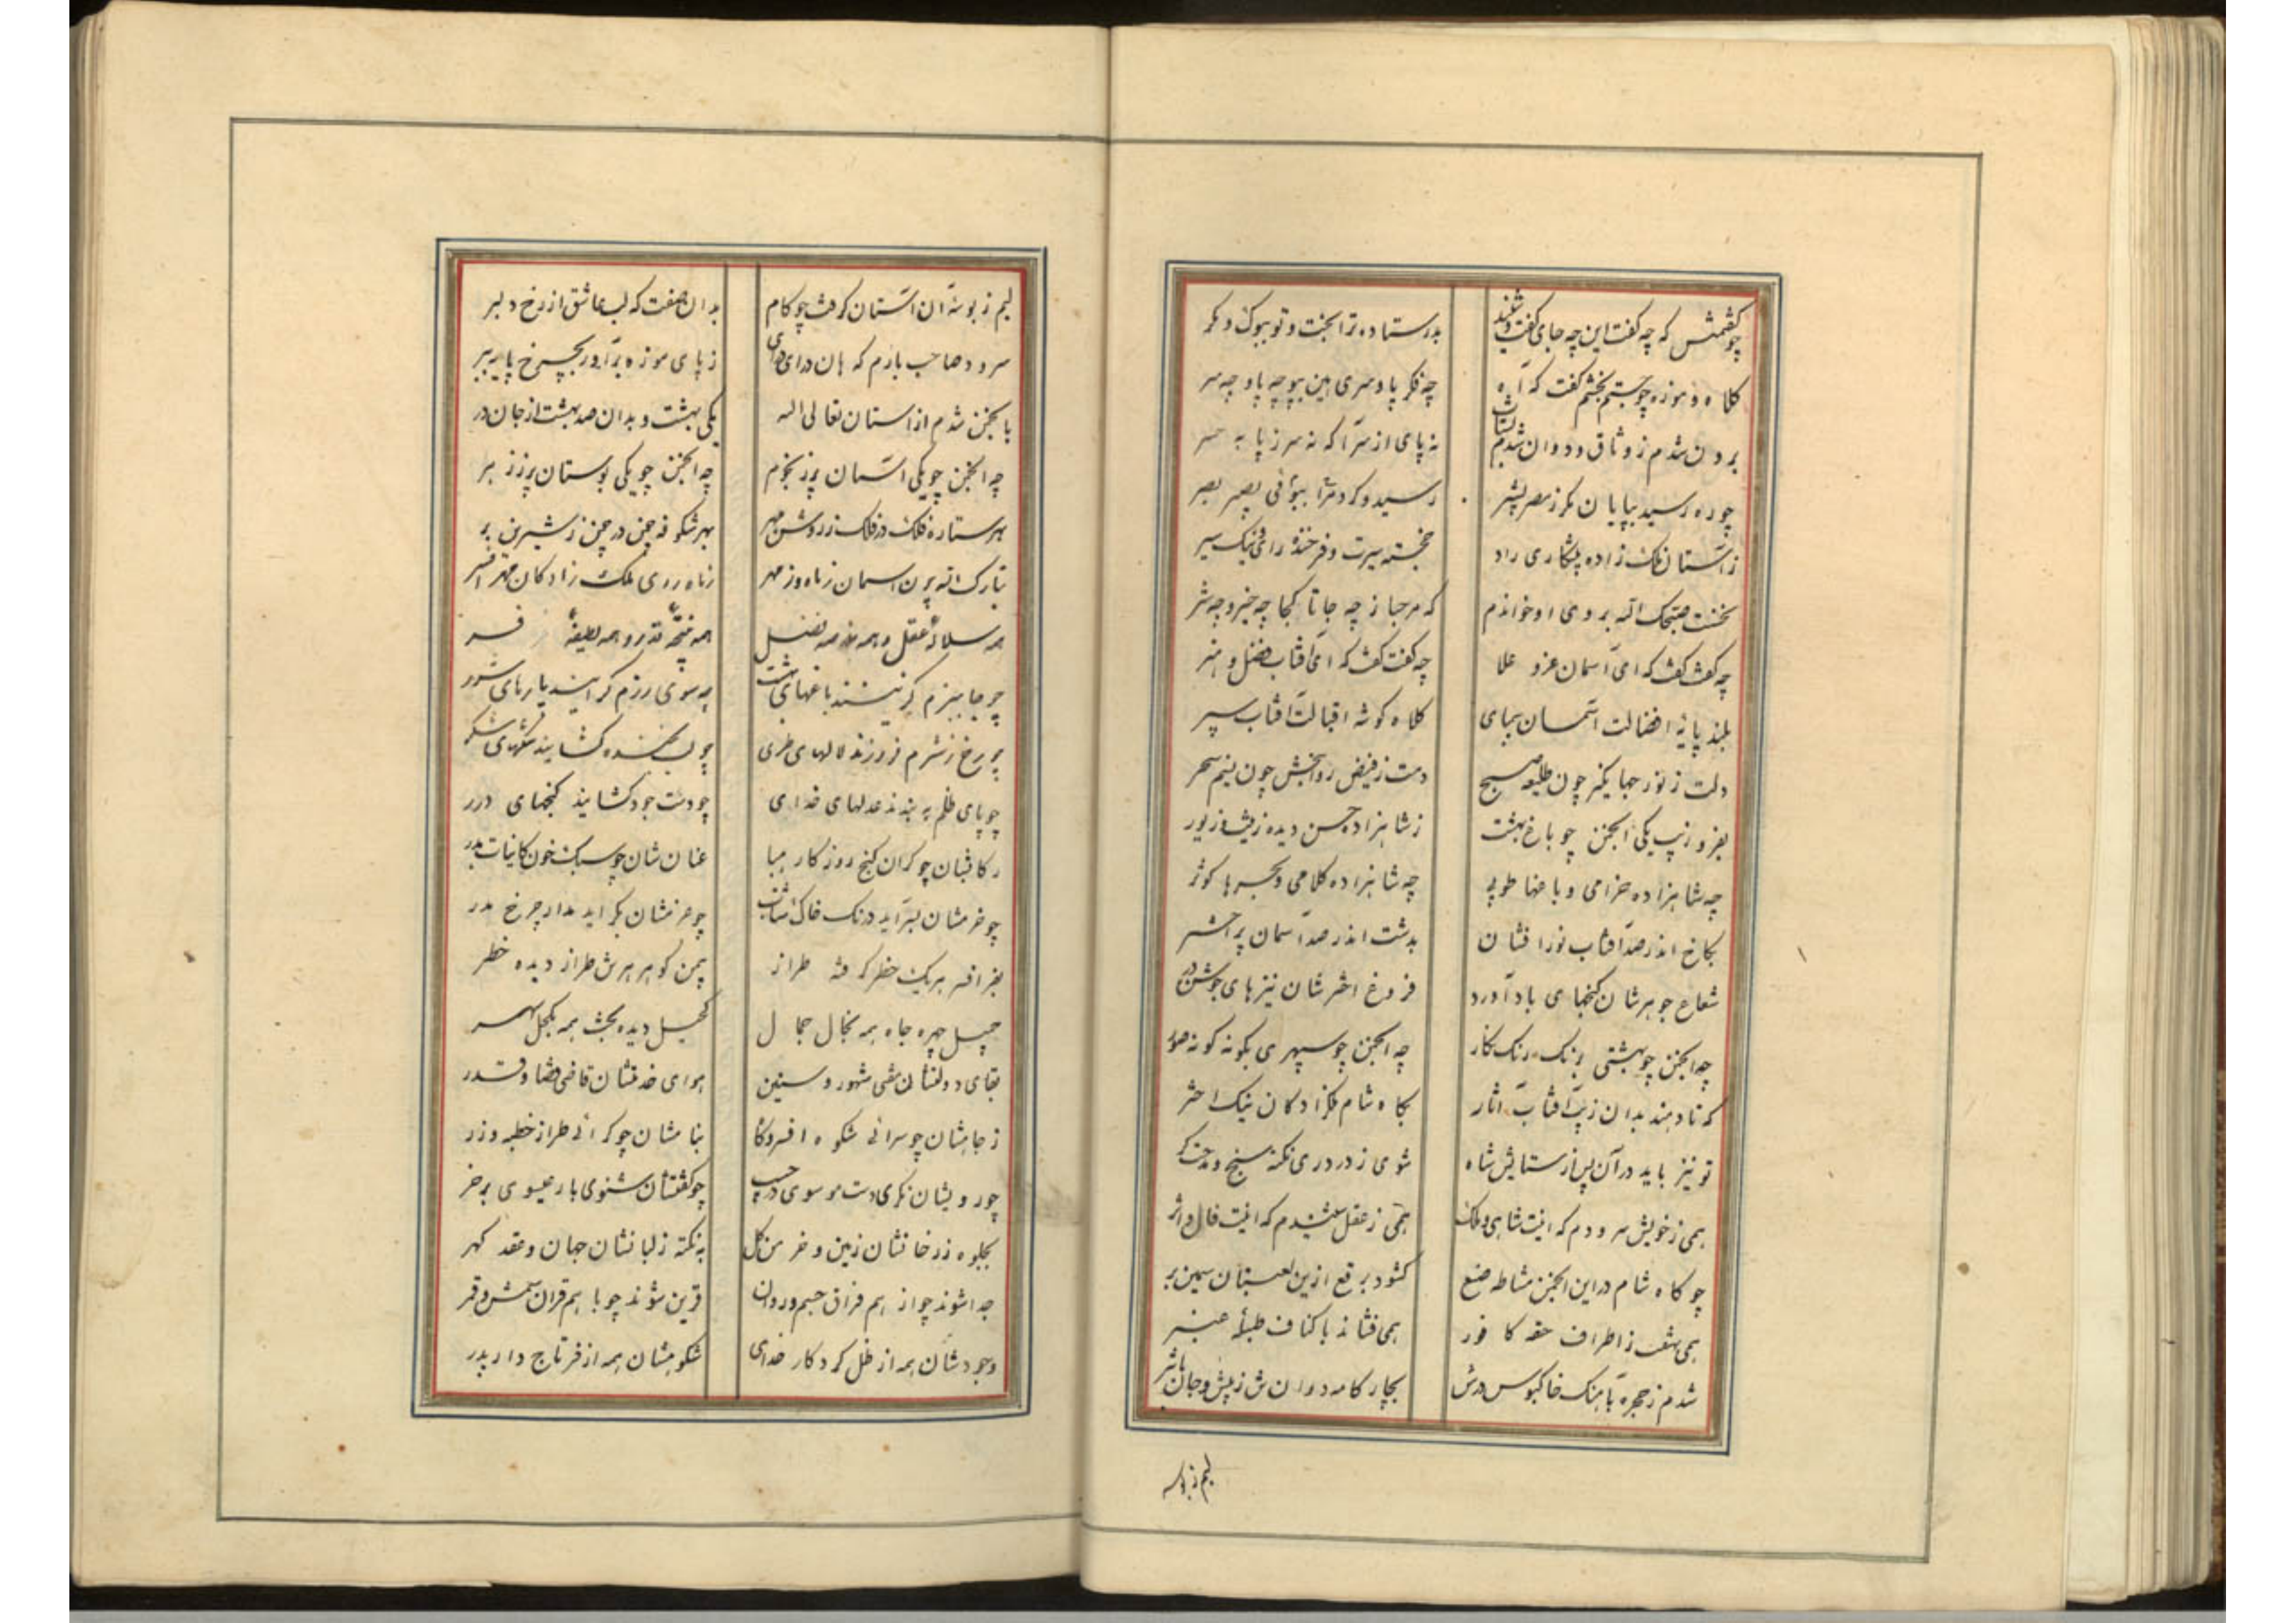 چو گفتمش که چه گفت این چه جای گفت و شنید بدر ستاده ترا بخت و تو ببوک و مکر
کلاه و موزه چو جستم بخشم گفت که آه چه فکر پا و سری هین بپو چه پا و چه سر
برون شدم ز وثاق و دوان شدم بشتاب نه پای از سر آگه نه سر ز پا به خبر
چو ره رسید بپایان مکر ز مصر پشیر رسید و کرد مرا بوافی بصیر بصر
ز آستان ملک زاده پیشکاری راد خجسته سیرت و فرخنده رای و نیک سیر
نخست صبحک الله بروی او خواندم که مرحبا ز چه جا تا کجا چه خیر و چه شر
چه گفت گفت که ای آسمان عز و علا چه گفت گفت که ای آفتاب فضل و هنر
بلند پایه افضالت آسمان پیمای کلاه کوشه اقبالت آفتاب سپر
دلت ز نور جهانگیر چون طلیعه صبح دمت ز فیض روانبخش چون نسیم سحر
بفر و زیب یکی انجمن چو باغ بهشت ز شاهزاده حسن دیده زینت و زیور
چه شاهزاده خرامی و باغها طوبی چه شاهزاده کلامی و بحرها کوثر
بکاخ اندر صد آفتاب نور افشان بدشت اندر صد آسمان پر اختر
شعاع جوهرشان گنجهای باد آورد فروغ اخترشان نیزهای جوشن در
چه انجمن چو بهشتی برنک رنک نکار چه انجمن چو سپهری بگونه گونه صور
که تا دهند بدان زیب آفتاب آثار بگاه شام ملکزادگان نیک اختر
تو نیز باید در آن پس از ستایش شاه شوی ز در دری نکته سنج و مدحت گر
همی ز خویش سرودم که اینت شاهی و ملک همی ز عقل شنیدم که اینت فال و اثر
چو گاه شام در این انجمن مشاطه صنع گشود برقع ازین لعبتان سیمین بر
همی نهفت ز اطراف حقه کافور همی فشاند با کناف طبله عنبر
شدم ز حجره بآهنگ خاکبوس درش بچار گامه دوان ش ز پیش و جان باثر
لبم ز بوسه
لبم ز بوسه آن آستان گرفت چو کام بدان صفت که لب عاشق از رخ دلبر
سرود حاجب بارم که هان درای درای ز پای موزه برآور بچرخ پایه ببر
بانجمن شدم از آستان تعالی الله یکی بهشت و بدان صد بهشت از جان در
چه انجمن چو یکی آسمان پر ز نجوم چه انجمن چو یکی بوستان پر ز زهر
بهر ستاره فلک در فلک ز روشن مهر بهر شکوفه چمن در چمن ز شیرین بر
تبارک الله برین آسمان ز ماه و ز مهر ز ماه روی ملک زادگان مهر افسر
همه سلاله عقل و همه فضل همه نتیجه قدر و همه لطیفه فر
چو جا ببزم گزینند باغهای بهشت چه سوی رزم گرایند
چو رخ ز شرم فروزند لالهای طری چو لب بخنده گشایند تنگهای شکر
چو پای ظلم به بندند عدلهای خدای چو دست جود گشایند گنجهای درر
رکابشان چو گران گنج روزگار هبا عنانشان چو سبک خون کاینات هدر
چو خرمشان بسر آید درنگ خاک شتاب چو عزمشان بگراید مدار چرخ مدر
بفر افسر هریک خطر گرفته طراز بیمن گوهر هرش طراز دیده خطر
جمیل چهره جاه همه بخال جمال کحیل دیده بخت همه بکحل سهر
بقای دولتشان مفتی شهور و سنین هوای خدمتشان قاضی قضا و قدر
ز جاهشان چو سرائی شکوه افسر و گاه بنامشان چو گرائی طراز خطبه و زر
چو رویشان نگری دست موسوی در جیب چو گفتشان شنوی بار عیسوی بر خر
بجلوه ز رخانشان زمین و خرمن گل به نکته ز لبانشان جهان و عقد گهر
جدا شوند چو از هم فراق جسم و روان قرین شوند چو با هم قران شمس و قمر
وجودشان همه از ظل کردگار خدای شکوهشان همه از فر تاج دار پدر